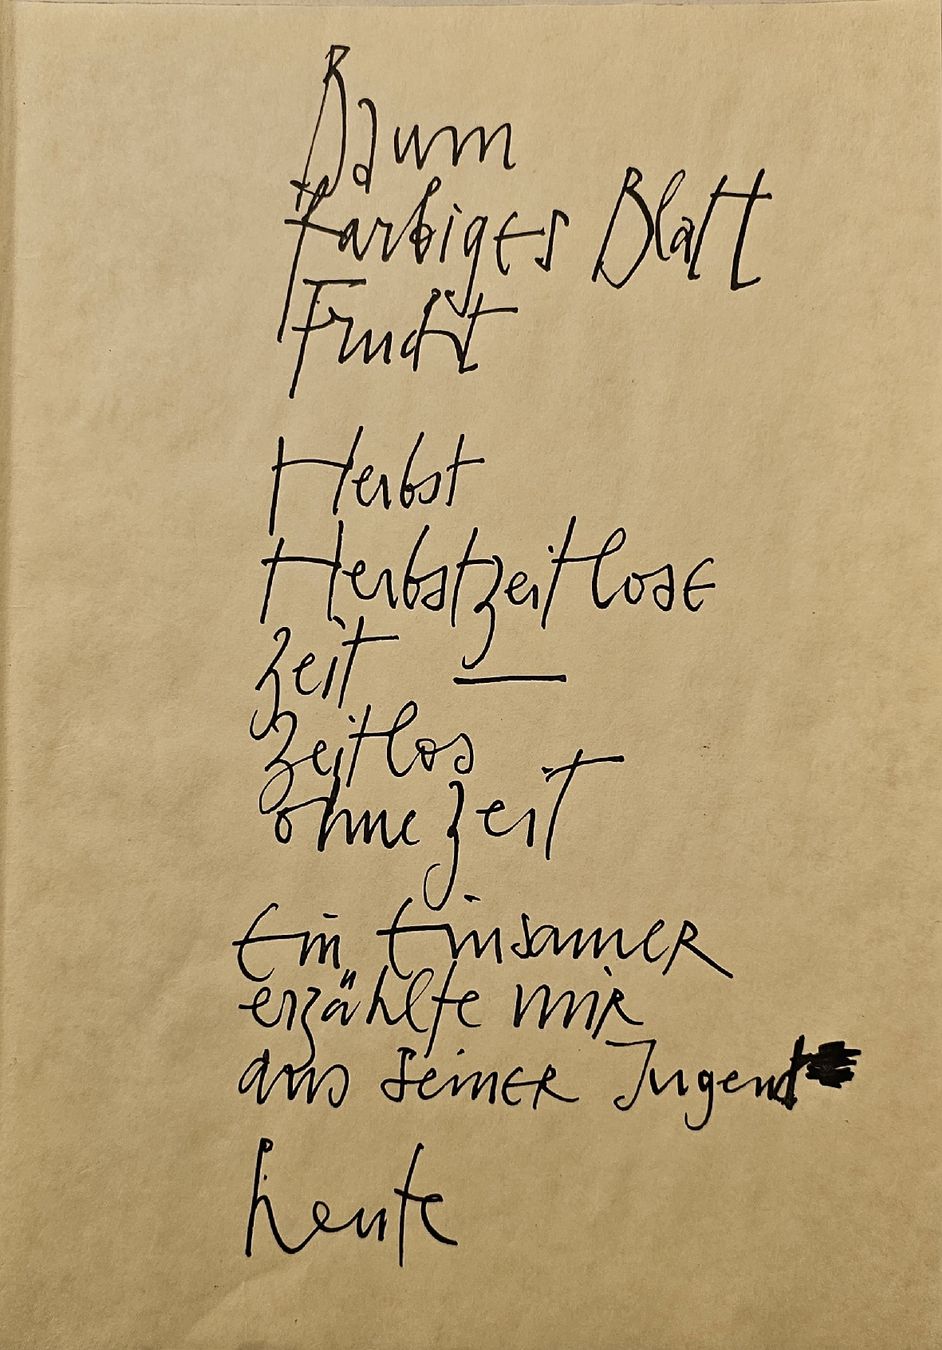 Baum
farbiges Blatt
Frucht
Herbst
Herbstzeitlose
Zeit —
zeitlos
ohne Zeit
Ein Einsamer
erzählte mir
aus seiner Jugend
heute